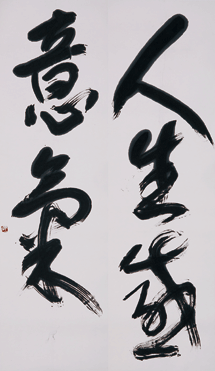 人生感
意氣